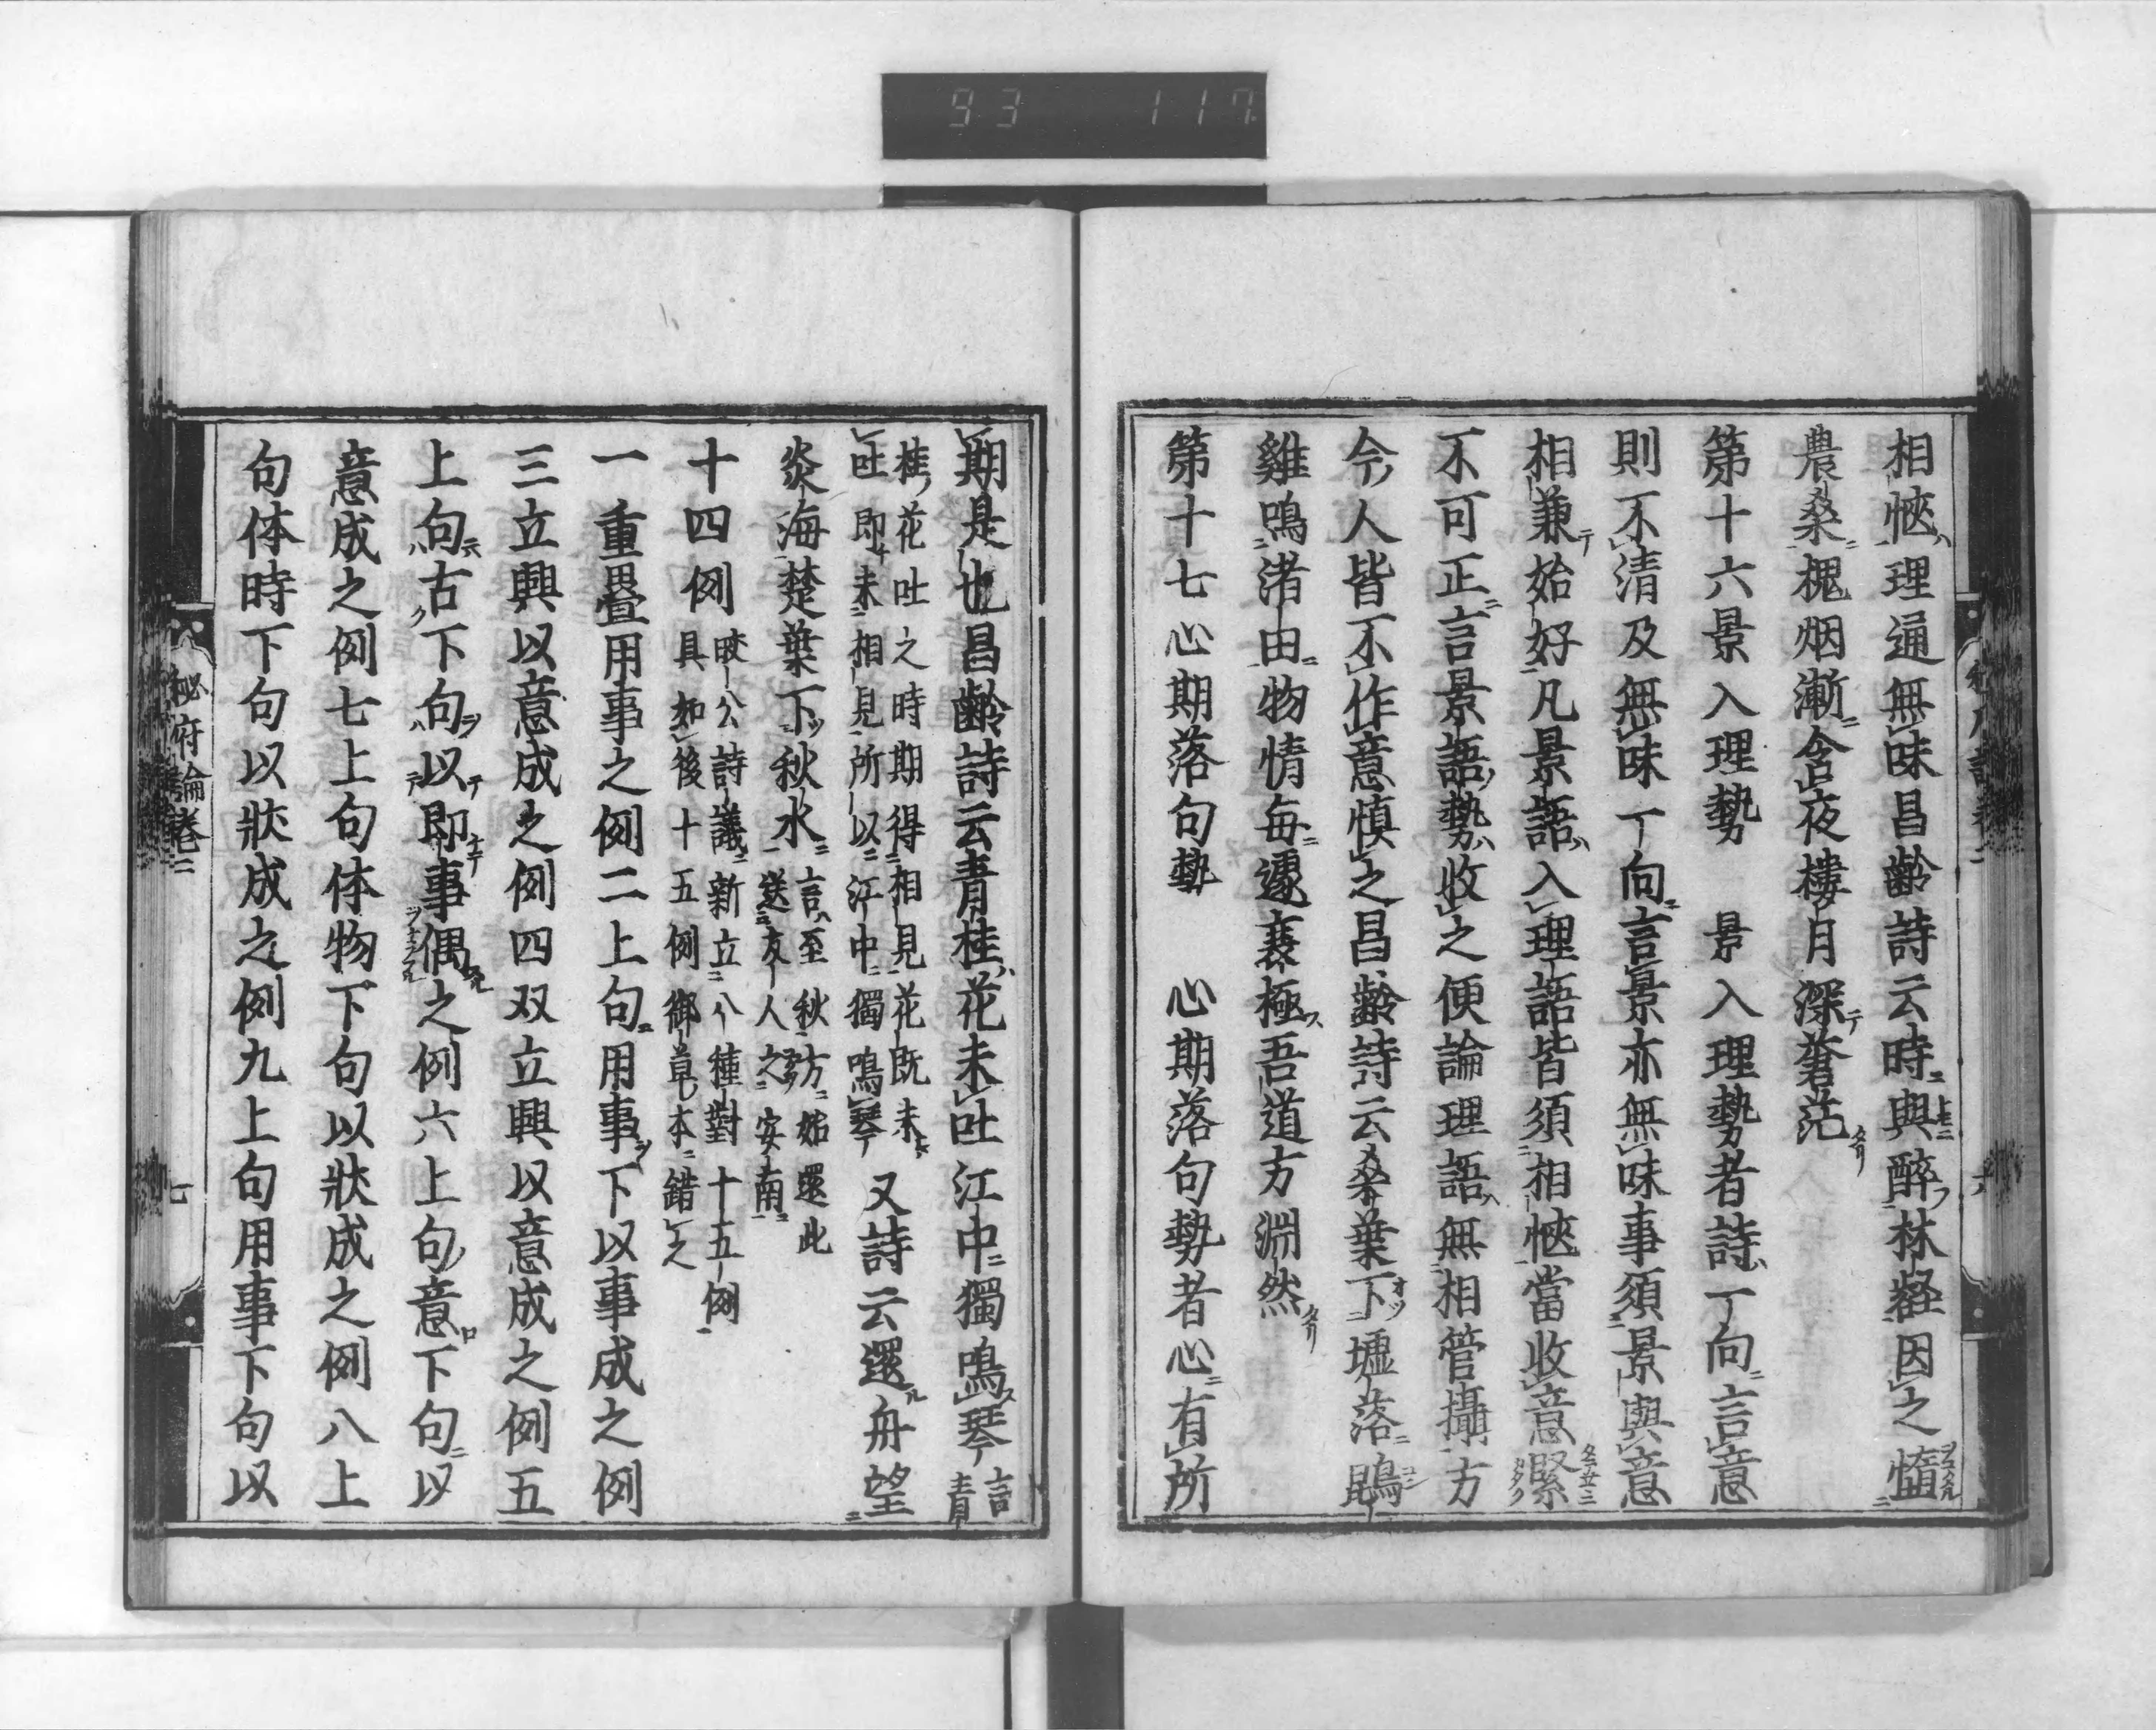 93 117
相愜理通無味昌齡詩云時與醉林壑因之惰
農桑槐烟漸含夜樓月深蒼茫
第十六景入理勢　景入理勢者詩丁向言意
則不清及無味丁向言景亦無味事須景與意
相兼始好凡景語入理語皆須相愜當收意緊
不可正言景語勢收之便論理語無相管攝方
今人皆不作意慎之昌齡詩云桑葉下墟落鵾
雞鳴渚田物情每遽衰極吾道方淵然
第十七心期落句勢　心期落句勢者心有所
期是也昌齡詩云青桂花未吐江中獨鳴琴言青
桂花吐之時期得相見花既未
吐即未相見所以江中獨鳴琴又詩云還舟望
炎海楚葉下秋水言至秋方始還此
送友人之安南
十四例皎公詩議新立八種對十五例
具如後十五例御草本錯之
一重疊用事之例二上句用事下以事成之例
三立興以意成之例四双立興以意成之例五
上句古下句以即事偶之例六上句意下句以
意成之例七上句体物下句以狀成之例八上
句体時下句以狀成之例九上句用事下句以
秘府論卷二
七